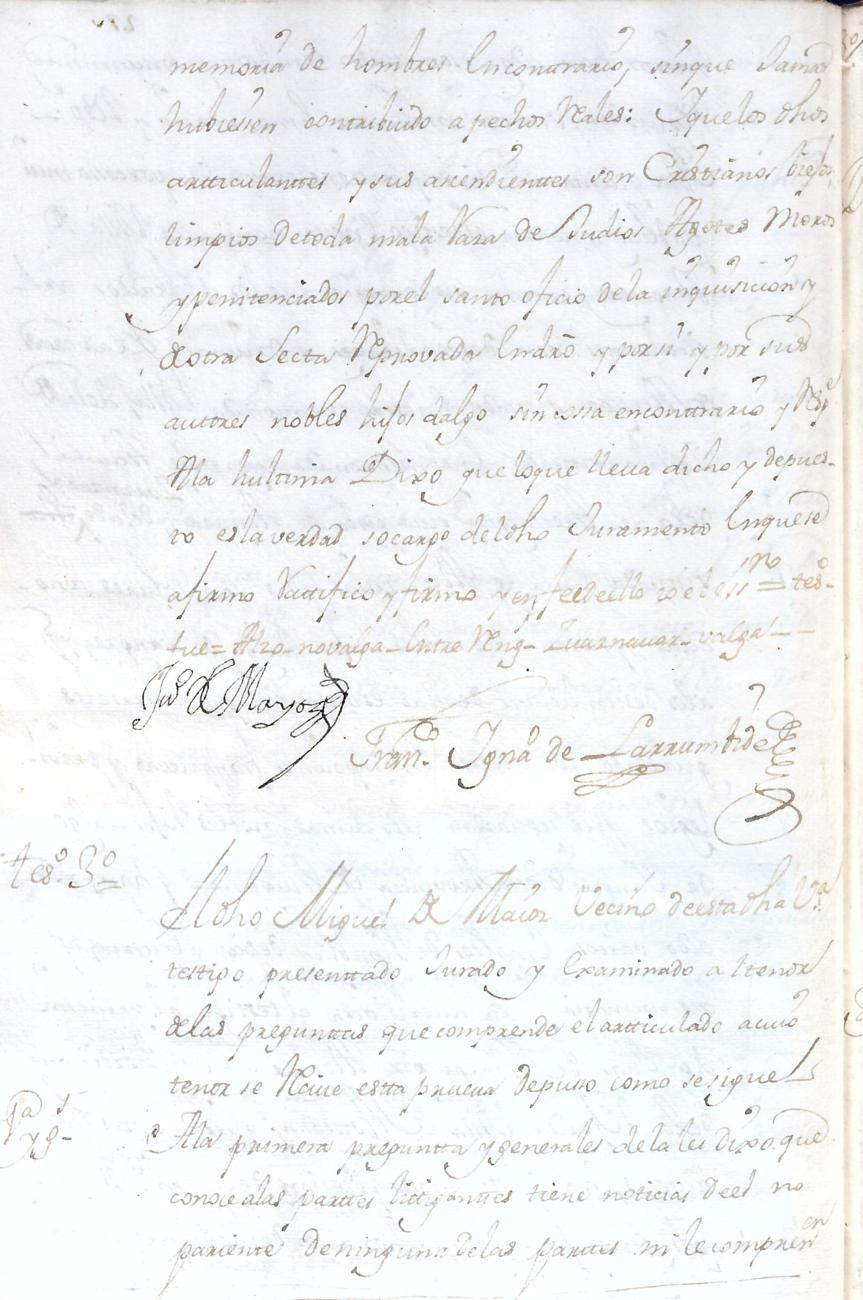 memoria de hombres Encontrario, sinque Jamas
hubiessen contribuido a pechos Reales: Yquelos dhos
artticulanttes y sus asendienttes son Cristianos biejos
limpios detoda mala Raza de Judios Agotes Moros
y penitenciados porel santo oficio dela inquisicion y
de otra Secta Reprovada Endro y porsi y por sus
auttres nobles hijos dalgo sin cossa enconttrario y
Ala hultima Dixo que loque lleva dicho y depues-
to es la verdad socargo deldho Juramento Enquese
afirmo Rattifico y firmo y en fee de ello yo el essno = tes-
tue = Alzo no valga = Entre Reng = valga =
Juo de Mayor
Franco Ignao de Larrumbide
teso 3o =
El dho Miguel de Maior Vecino deesta dha Va
testigo presenttado Jurado y Examinado al tenor
delas pregunttas que comprende el artticulado a cuio
tenor se Recive estta prueva depuso como se sigue
Pa y gs
Ala primera pregunta y generales dela lei dixo que
conoce alas parttes littiganttes tiene noticias de el no
pariente deninguna delas parttes ni le compren
en